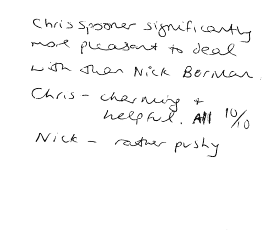 Chris Spooner significantly
more pleasant to deal
with than Nick Borman.
Chris - charming +
helpful. All 10/10
Nick - rather pushy